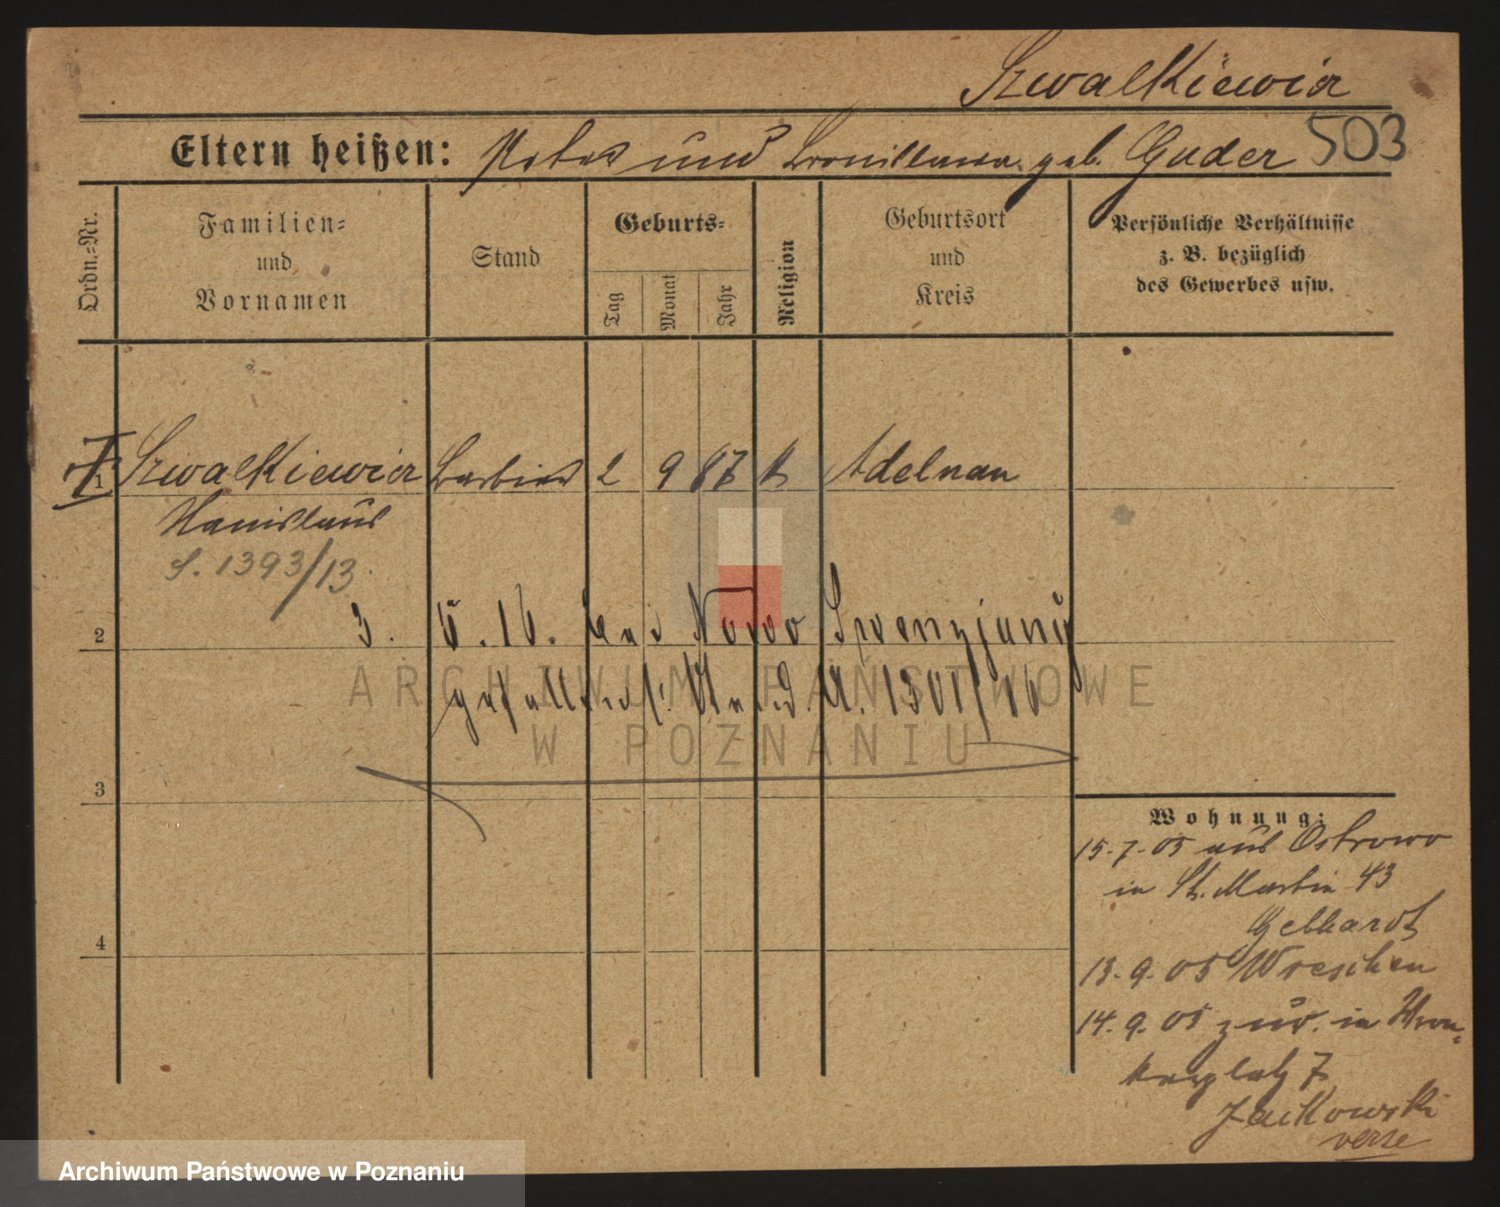 Szwalkiewicz
503
Eltern heißen: Peter und Bronislawa geb. Guder
Ordn.-Nr.
Familien-
und
Vornamen
Stand
Geburts-
Tag
Monat
Jahr
Religion
Geburtsort
und
Kreis
Persönliche Verhältnisse
z. B. bezüglich
des Gewerbes usw.
1 Szwalkiewicz Barbier 2 9 87 k Adelnau
Stanislaus
S. 1393/13
3. 5. 16. bei Nowo Swenzjany
2
gefallen St. A. 1301/16
ARCHIWUM PAŃSTWOWE
W POZNANIU
3
4
Wohnung:
15.7.05 aus Ostrowo
in St. Martin 43
Gebhardt
13.9.05 Wreschen
14.9.05 zur. in Wron-
kerplatz 7
Jackowski
verse
Archiwum Państwowe w Poznaniu